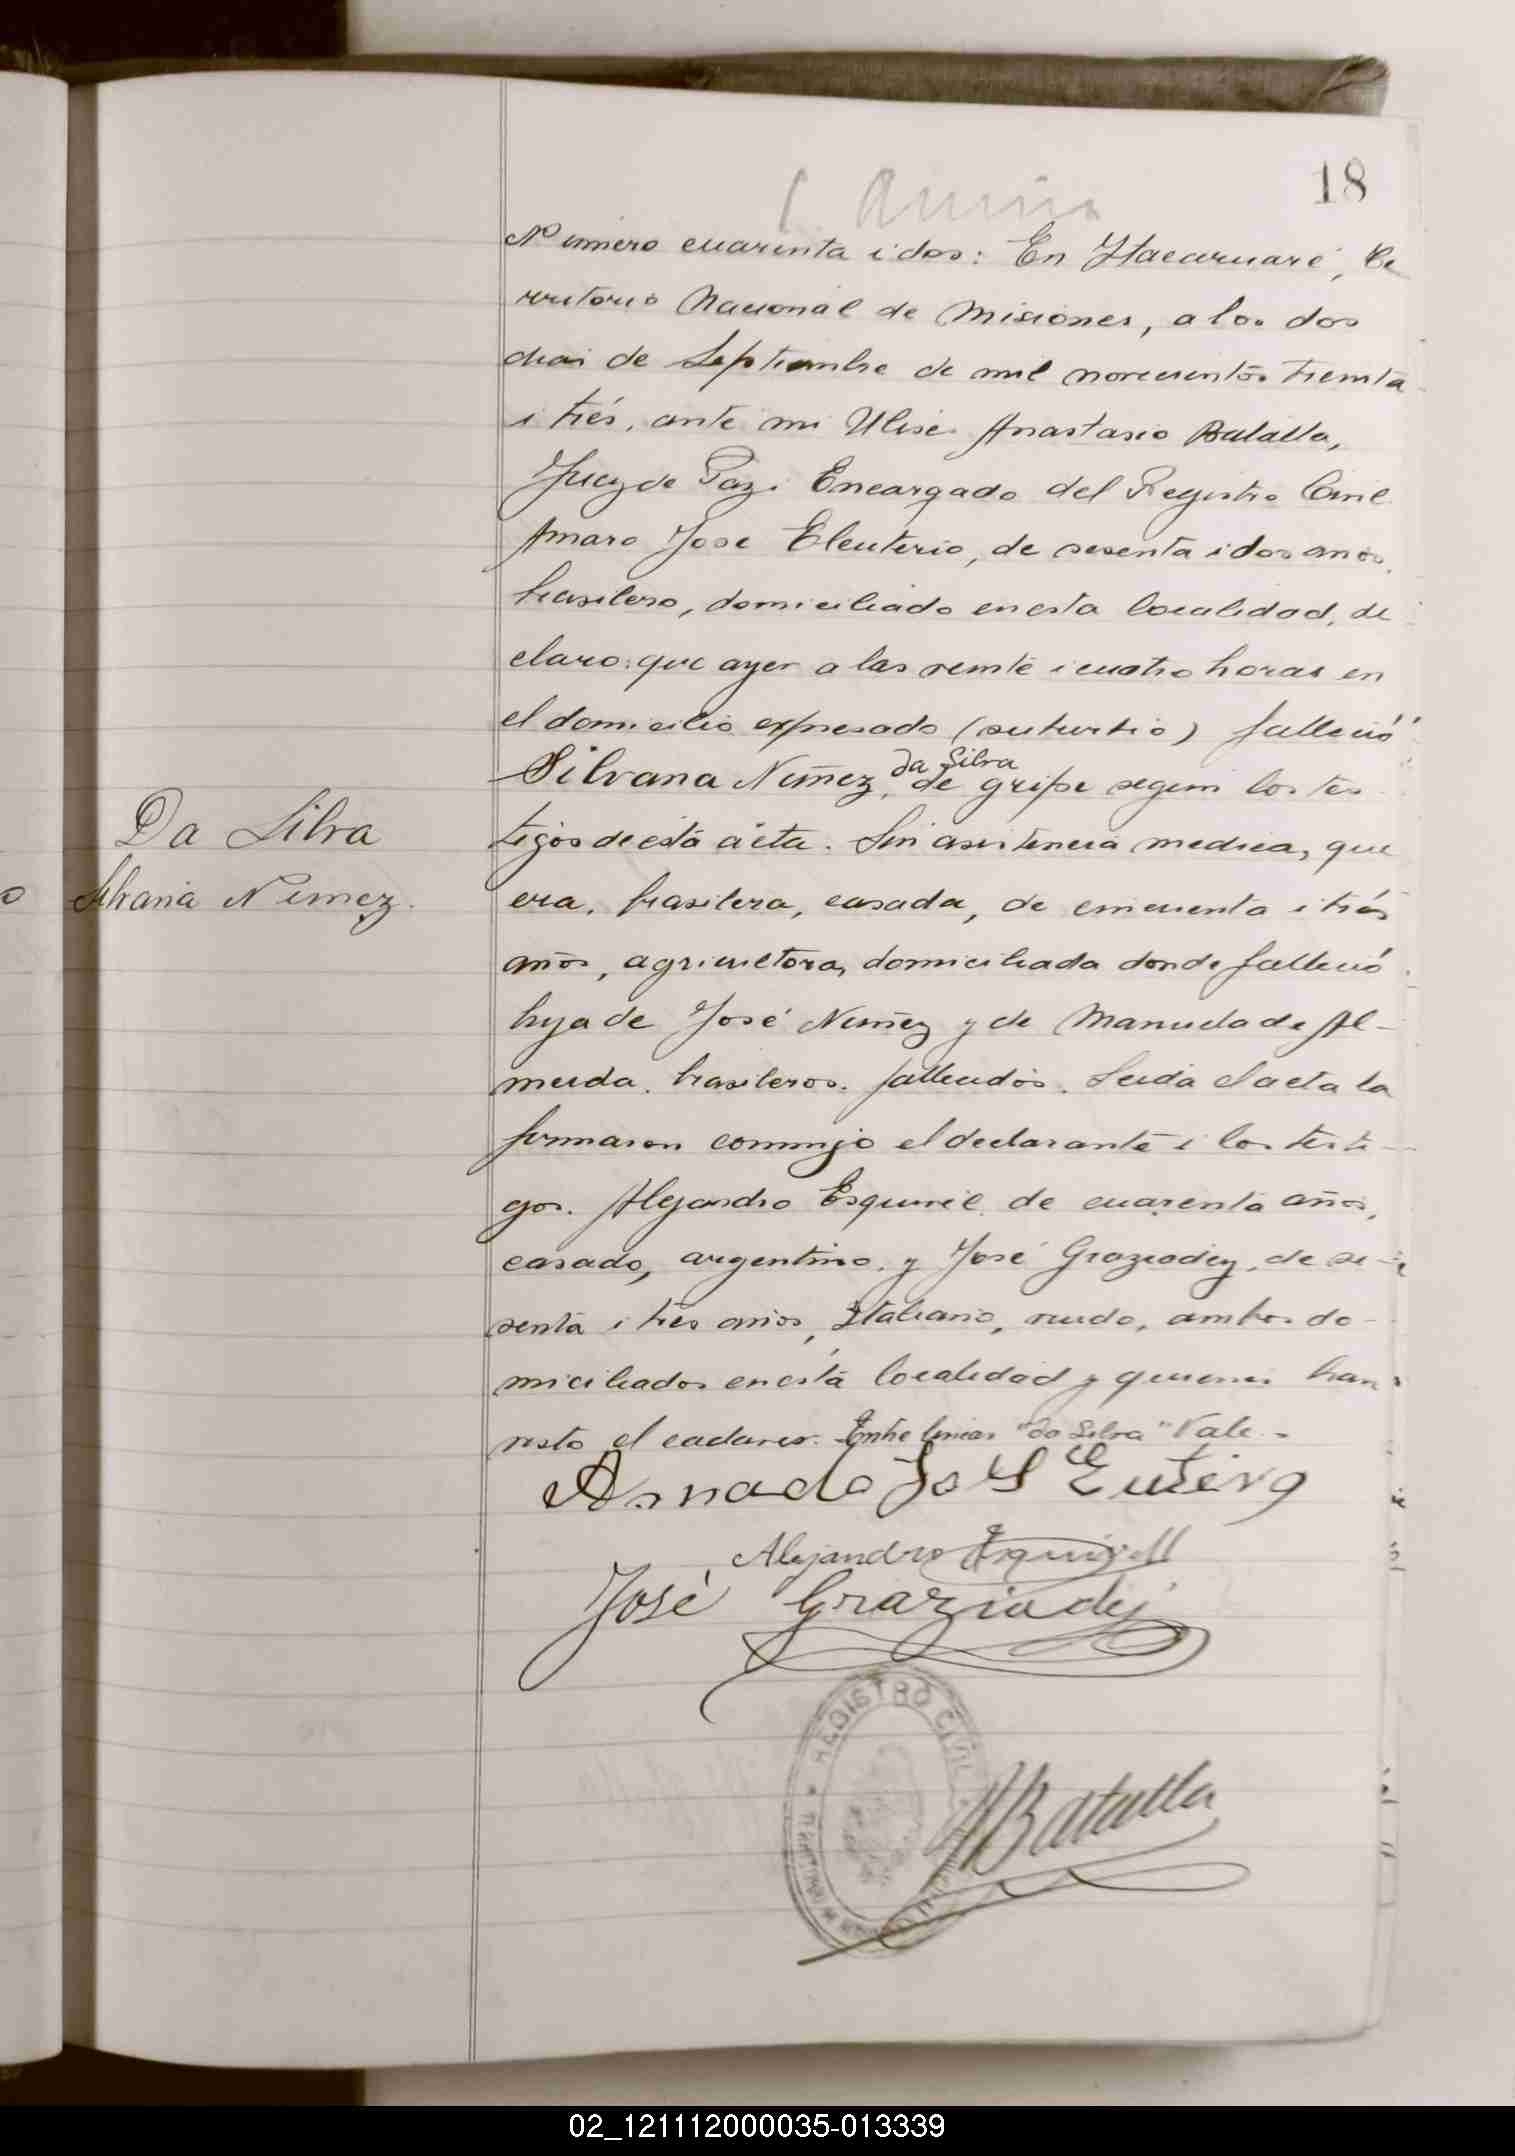 18
Número cuarenta i dos: En Itacaruaré, Te
rritorio Nacional de Misiones, a los dos
dias de Septiembre de mil novecientos treinta
i trés, ante mi Ulises Anastasio Batalla,
Juez de Paz i Encargado del Registro Civil
Amaro José Eleuterio, de sesenta i dos años,
brasilero, domiciliado en esta localidad, de
claro: que ayer a las veinte i cuatro horas en
el domicilio expresado falleció
da Silva
Silvana Nuñez, de gripe segun los tes
tigos de esta acta. Sin asistencia medica, que
Da Silva
era, brasilera, casada, de cincuenta i trés
Silvana Nuñez.
años, agricultora, domiciliada donde falleció
hija de José Nuñez y de Manuela de Al-
meida, brasileros, fallecidos. Leida el acta la
firmaron conmigo el declarante i los testi-
gos. Alejandro Esquivel de cuarenta años,
casado, argentino, y José Graziadey, de se-
senta i tres años, Italiano, viudo, ambos do-
miciliados en esta localidad y quienes han
visto el cadaver. Entre lineas "da Silva" Vale.-
Alejandro Esquivell
José Graziadei
REGISTRO CIVIL
Batalla
02_121112000035-013339